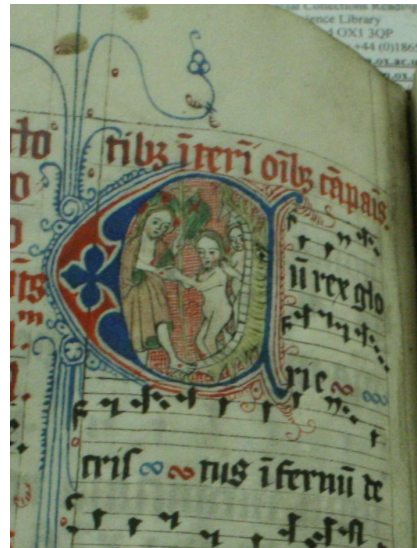 Collections Reading
ience Library
OX1 3QP
+44 (0)1865
ox.ac.u
tibꝫ īterī oībꝫ cāpaīs.
Cū rex glo
rie
cris tus īfernū de